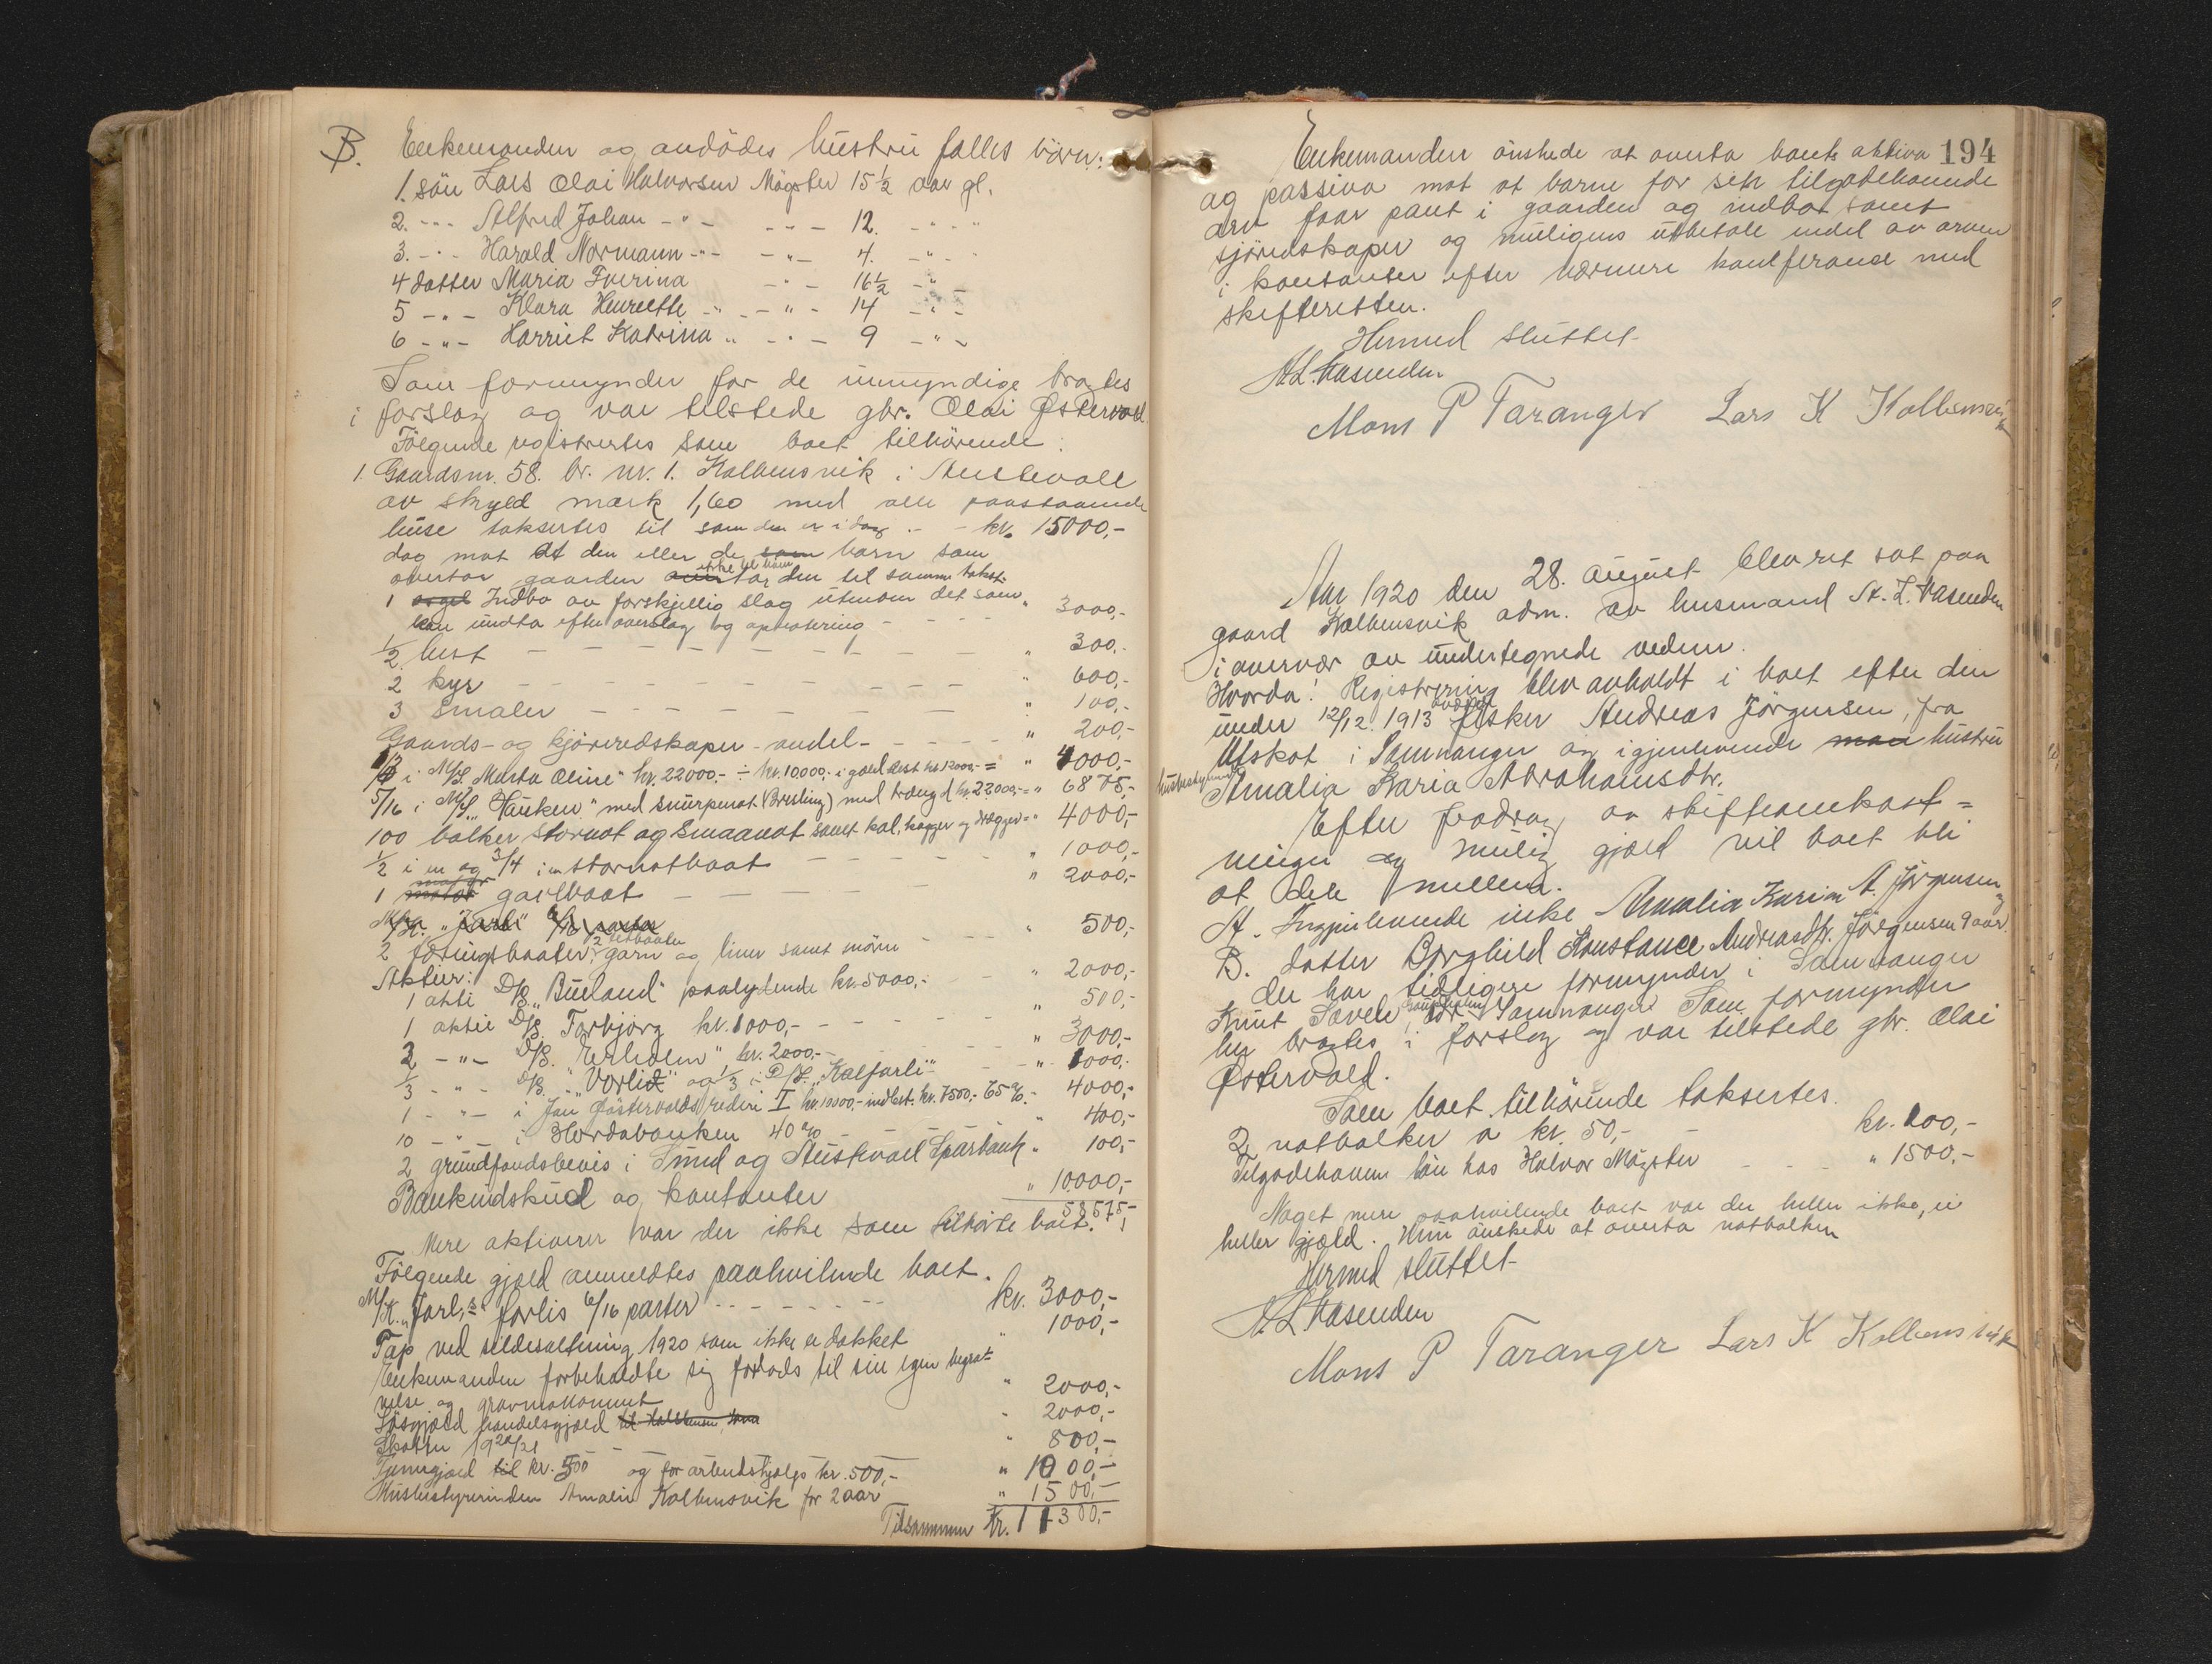 B. Enkemanden og avdödes hustru fælles börn:
1. sön Lars Olai Halvorsen Mögster 15½ aar gl.
2. -"- Alfred Johan -"- -"- 12. -"-
3. -"- Harald Normann -"- -"- 4. -"-
4 datter Maria Tverina -"- 16½ -"-
5 -"- Klara Henreette -"- -"- 14 -"-
6 -"- Harriet Katrina -"- -"- 9 -"-
Som formynder for de umyndige bragtes
i forslag og var tilstede gbr. Olai Østervold.
Fölgende registrertes som boet tilhörende:
1. Gaardsnr. 58. br. nr. 1. Kalvensvik i Austevoll
av skyld mark 1,60 med alle paastaaende
huse taksertes til som den er i dag - - kr. 15000,-
dog mot at den eller de som barn som
overtar gaarden ikke til ham den til samme takst.
1 orgel Indbo av forskjellig slag utenom det som
kan undta efter overslag og optegning - - " 3000,-
½ hest - - - " 300,-
2 kyr - - - " 600,-
3 smaler - - - " 100,-
Gaards- og kjöreredskaper - andel - - - " 200,-
1/3 i M/S. "Marta Oline" kr. 22000,- ÷ kr. 10000,- i gjæld Rest kr 12000,- = " 4000,-
5/16 i M/S. "Hauken" med snurpenot (Brisling) med træng d kr. 22000,- = " 6875,-
100 balker stornot og smaanot samt kal, kagger og drægger = " 4000,-
½ i en og 3/4 i en stornotbaat - - - " 1000,-
1 motor garlbaat - - - " 2000,-
M/K. "Jarl" 6/16 parter
2 föringsbaater, 2 letbaater garn og liner samt mörer - - " 500,-
Aktier:
1 akti D/S. "Bueland" paalydende kr. 5000,- - " 2000,-
1 aktie D/S. Torbjörg kr. 1000,- - - - " 500,-
2 -"- D/S. "Erholm" kr. 2000,- - - " 3000,-
1/3 -"- D/S. "Vorlid" og 1/3 i D/S. "Kalfarli" - " 1000,-
1 -"- i Jan Östervolds rederi I kr. 10000,- indbet. kr. 7500,- 65 %. - 4000,-
10 -"- i Hordabanken 40 % - - " 400,-
2 grundfondsbevis i Sund og Austevoll Sparbank " 100,-
Bankindskud og kontanter " 10000,-
58575,-
Mere aktiverer var der ikke som tilhörte boet.
Fölgende gjæld anmeldtes paahvilende boet.
M/K. "Jarl,s" forlis 6/16 parter - - - kr. 3000,-
Tap ved sildesaltning 1920 som ikke er dækket " 1000,-
Enkemanden forbeholdte sig forlods til sin egen begrav=
velse og gravmonument " 2000,-
Lösgjæld handelsgjæld " 2000,-
Skatten 1920/21 " 800,-
Tjenergjæld til kr. 500 og for arbeidshjælp kr. 500,- " 1000,-
Husbestyrerinden Amalie Kalvensvik for 2 aar " 1500,-
Tilsammen kr. 11300,-
194
Enkemanden önskede at overta boets aktiva
og passiva mot at barna for sin tilgodehavende
arv faar pant i gaarden og indbo samt
sjöredskaper og muligens utbetale endel av arven
i kontanter efter nærmere konferance med
skifteretten.
Hermed sluttet.
A.L. Vasenden
Mons P Taranger Lars K Kalvensvik
Aar 1920 den 28. august blev ret sat paa
gaard Kalvensvik adm. av lensmand A. L. Vasenden
i overvær av undertegnede vedner.
Hvorda! Registrering blev avholdt i boet efter den
under 12/12. 1913 avdöde fisker Andreas Jörgensen, fra
Utskot i Samnanger og igjenlevende man hustru
Amalia Karia Abrahamsdtr.
Efter fradrag av skifteomkost=
ninger og mulig gjæld vil boet bli
at dele mellem.
A. Ingjenlevende enke Amalia Karia A. Jörgensen og
B. datter Borghild Konstance Andreasdtr. Jörgensen 9 aar.
der har tidligere formynder i Samnanger
Knut Saveli Samnanger Som formynder
her bragtes i forslag og var tilstede gbr. Olai
Östervold.
Som boet tilhörende taksertes.
2 notbalker a kr. 50,- - kr. 100,-
Tilgodehaven lön hos Halvor Mögster - - - " 1500,-
Noget mere paahvilende boet var der heller ikke, ei
heller gjæld. Hun önskede at overta notbalken
Hermed sluttet.
A.L. Vasenden
Mons P Taranger Lars K Kalvensvik